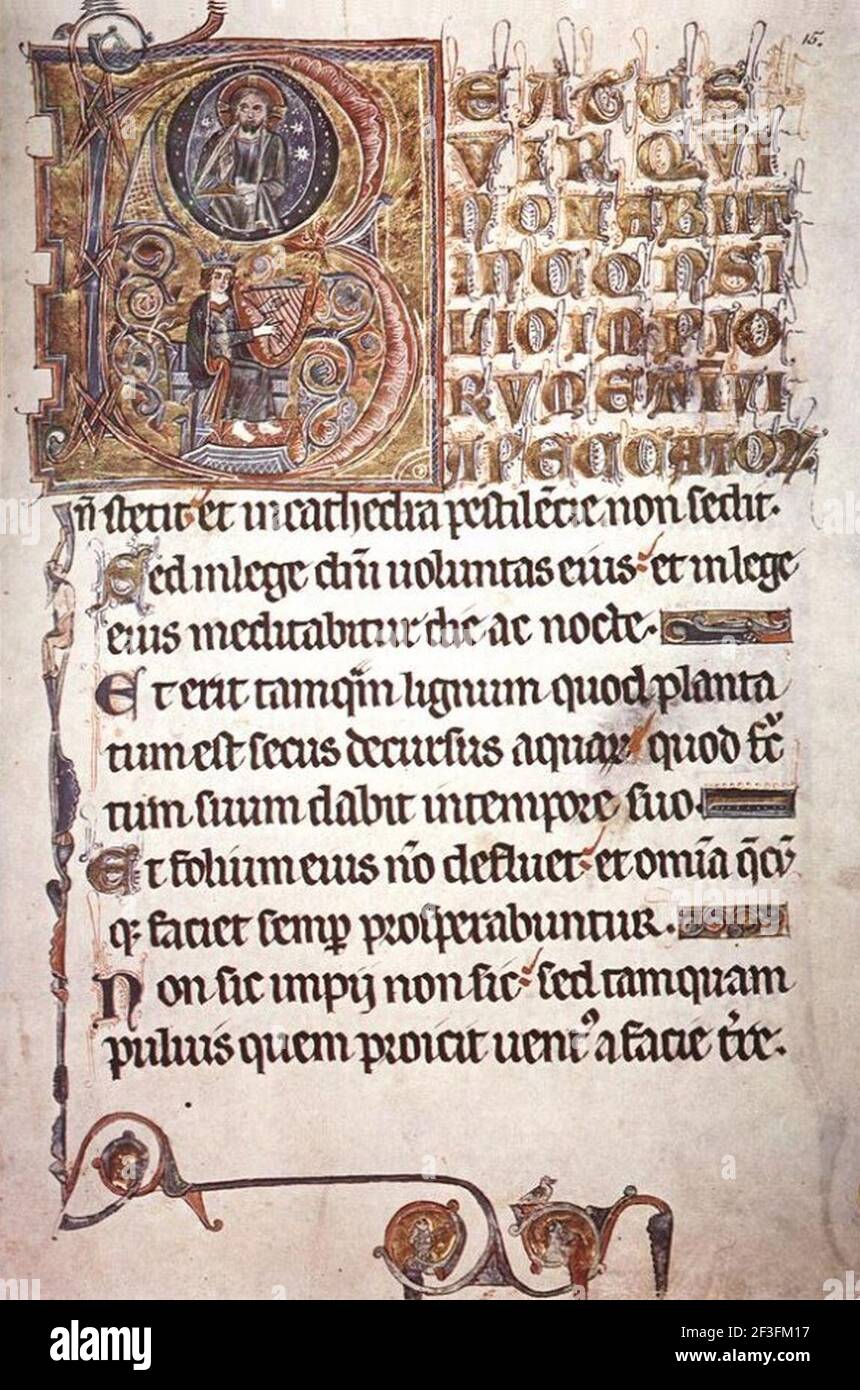 15.
BEATUS
VIR QVI
NON ABIIT
IN CONSI
LIO IMPIO
RVM ET Ī VI
A PECCATORꝜ
n̄ stetit et in cathedra pestilēcie non sedit.
Sed in lege dn̄i uoluntas eius et in lege
eius meditabitur die ac nocte.
Et erit tamq̄m lignum quod planta
tum est secus decursus aquaꝝ quod fc̄
tum suum dabit in tempore suo.
Et folium eius nō defluet et omīa q̄cū
qꝫ faciet semꝑ prosperabuntur.
Non sic impij non sic sed tamquam
puluis quem proicit uentꝰ a facie t̄re.
alamy
Image ID: 2F3FM17
www.alamy.com